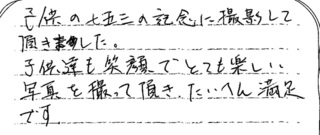 子供の七五三の記念に撮影して
頂きました。
子供達も笑顔でとても楽しい
写真を撮って頂き、たいへん満足
です。